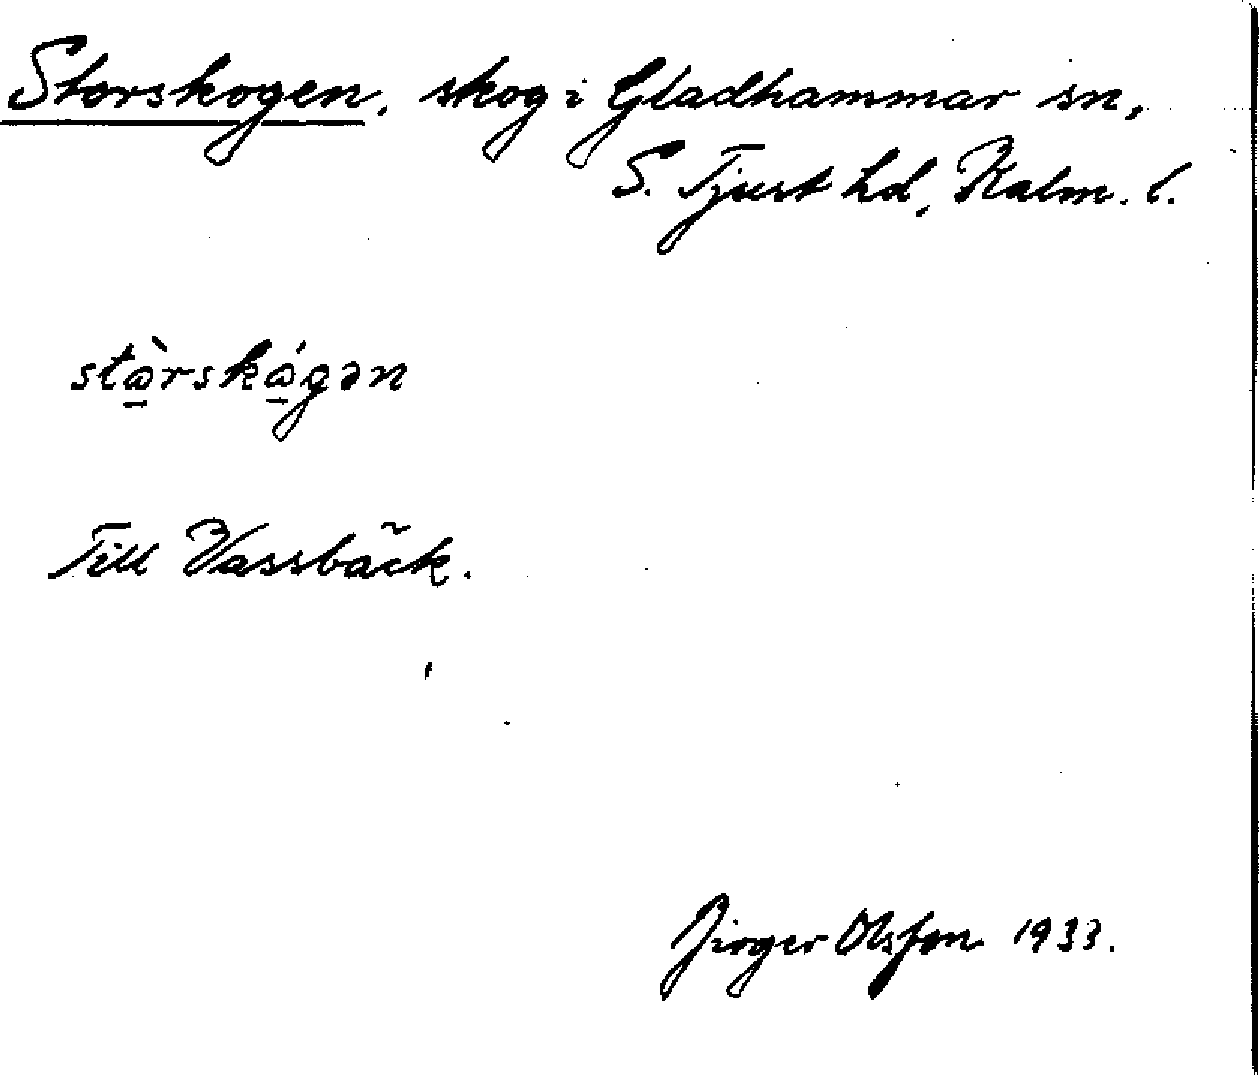 Storskogen, skog i Gladhammar sn,
S. Tjust hd, Kalm. l.
stὼ̱rskώ̱gən
Till Vassbäck.
Birger Olsson 1933.